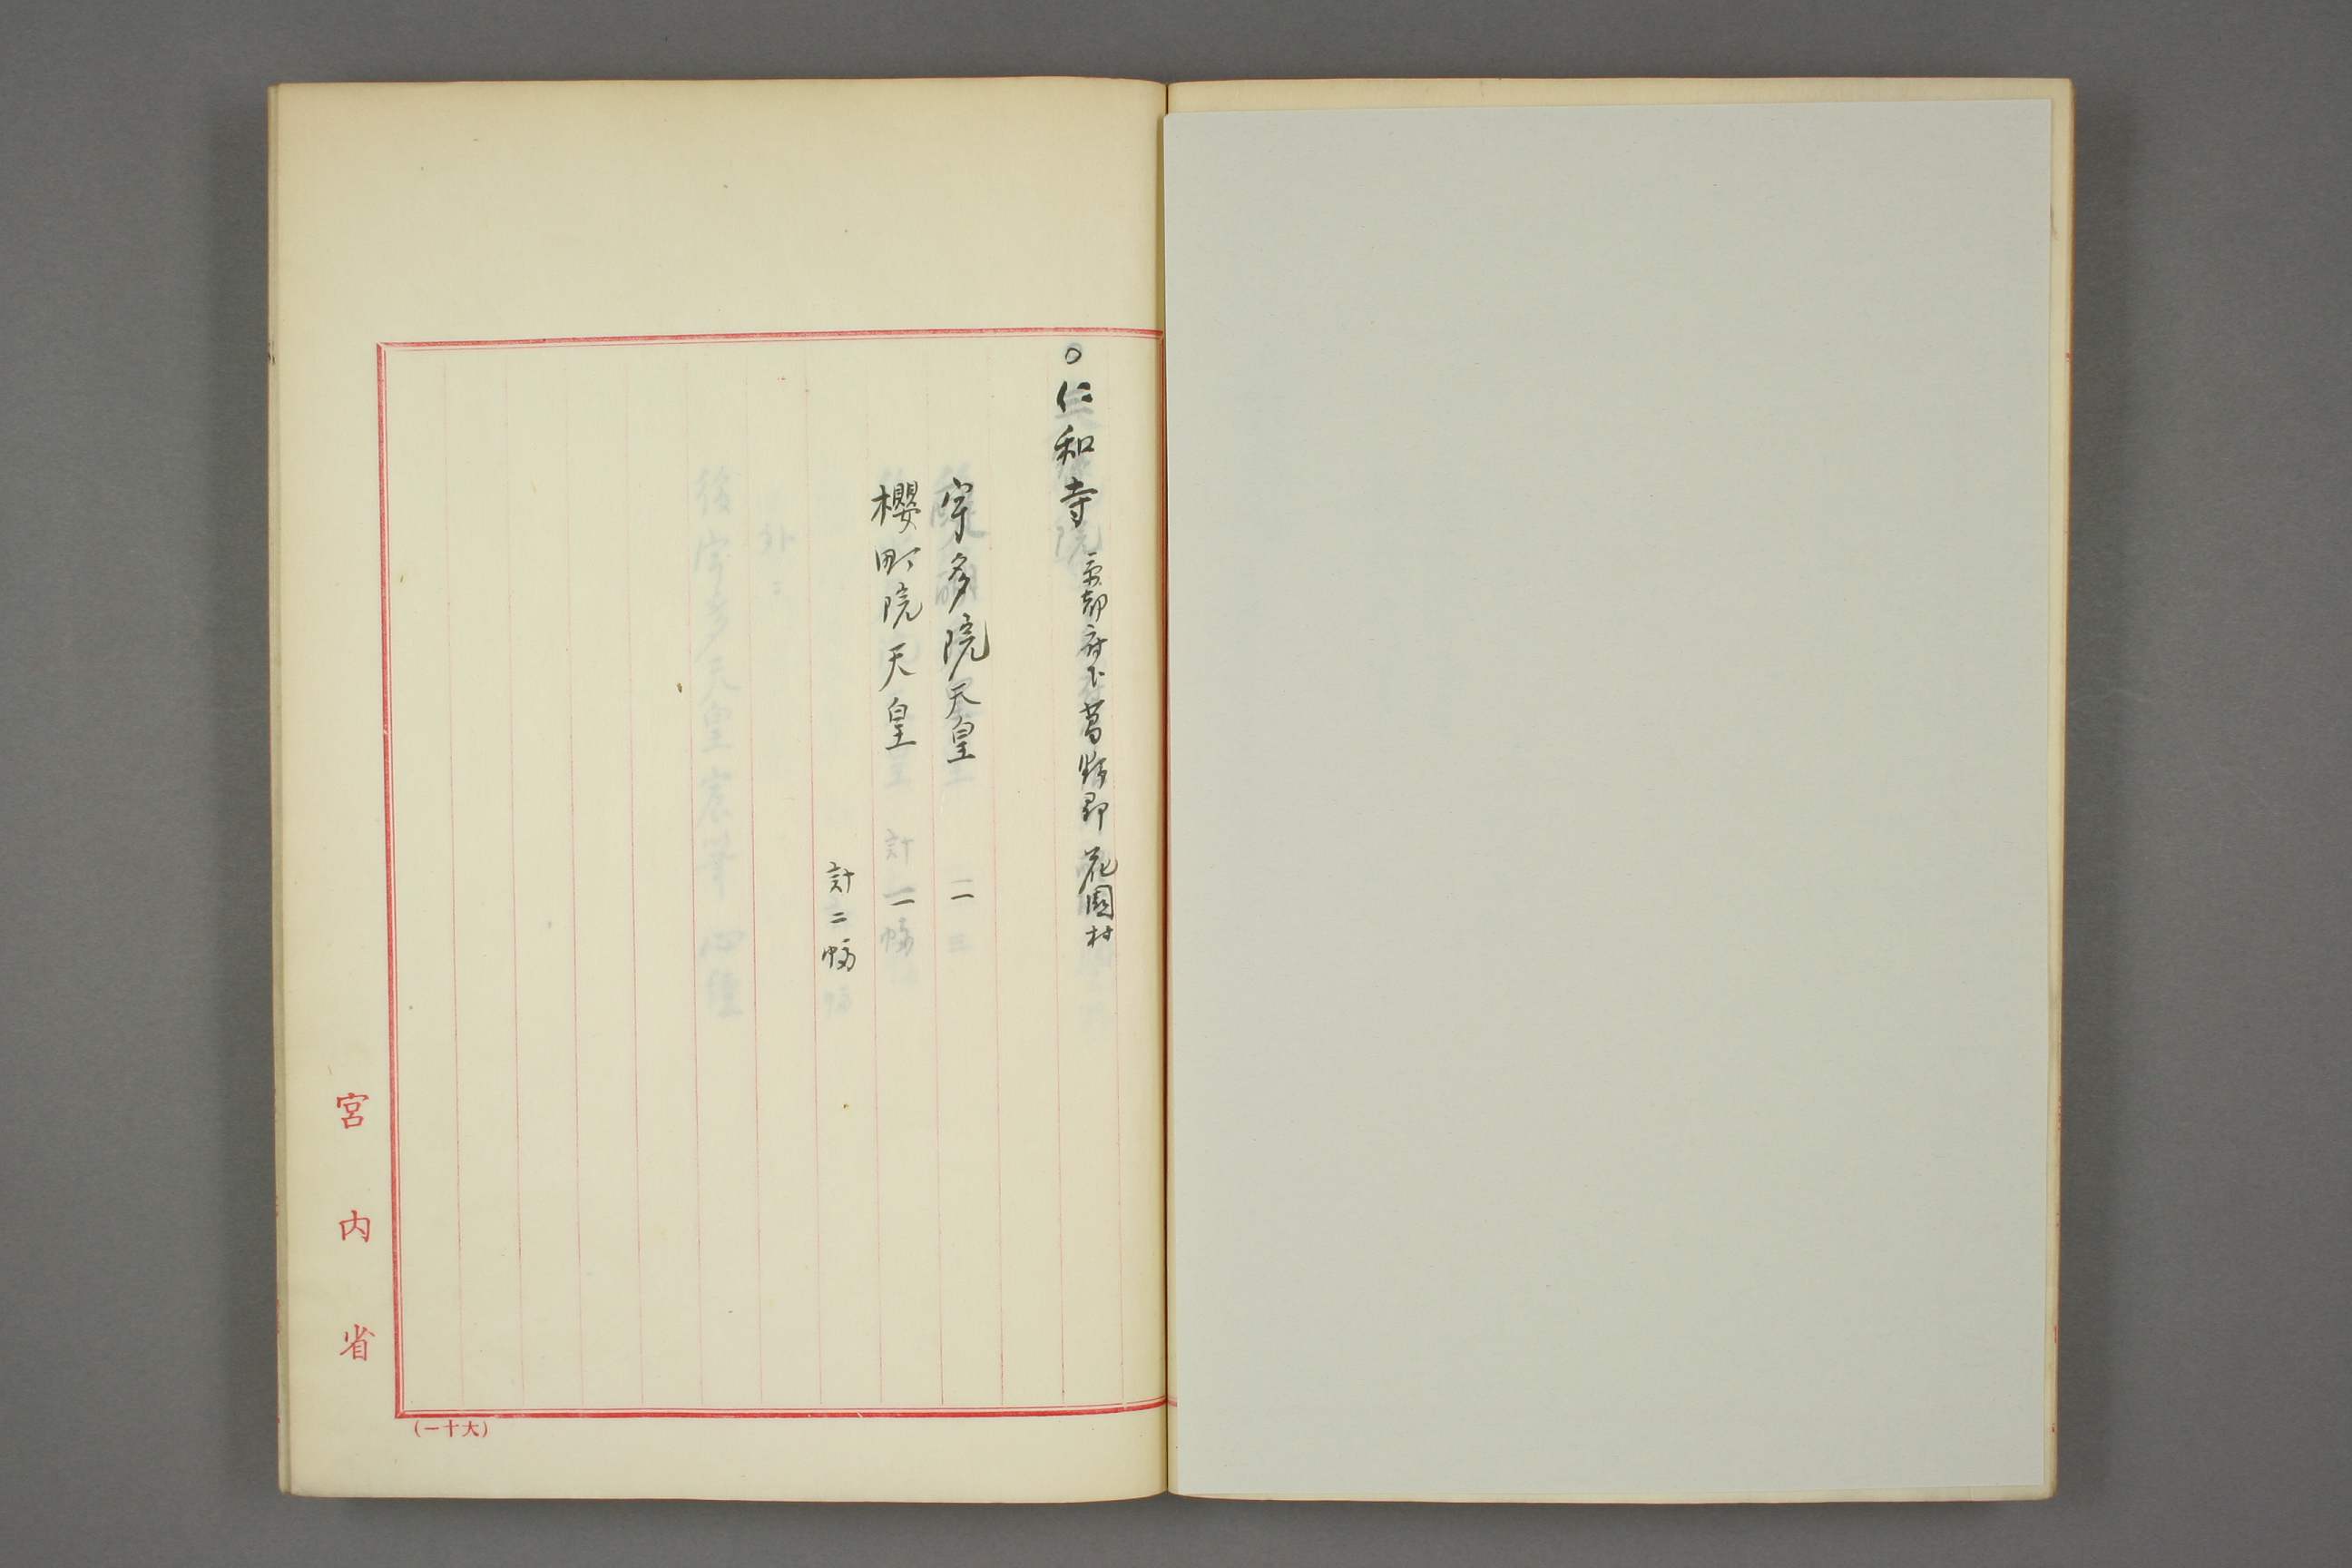 ○仁和寺 京都府下葛野郡花園村
宇多院天皇 一
櫻町院天皇 一
計二幅
宮内省
(大十一)